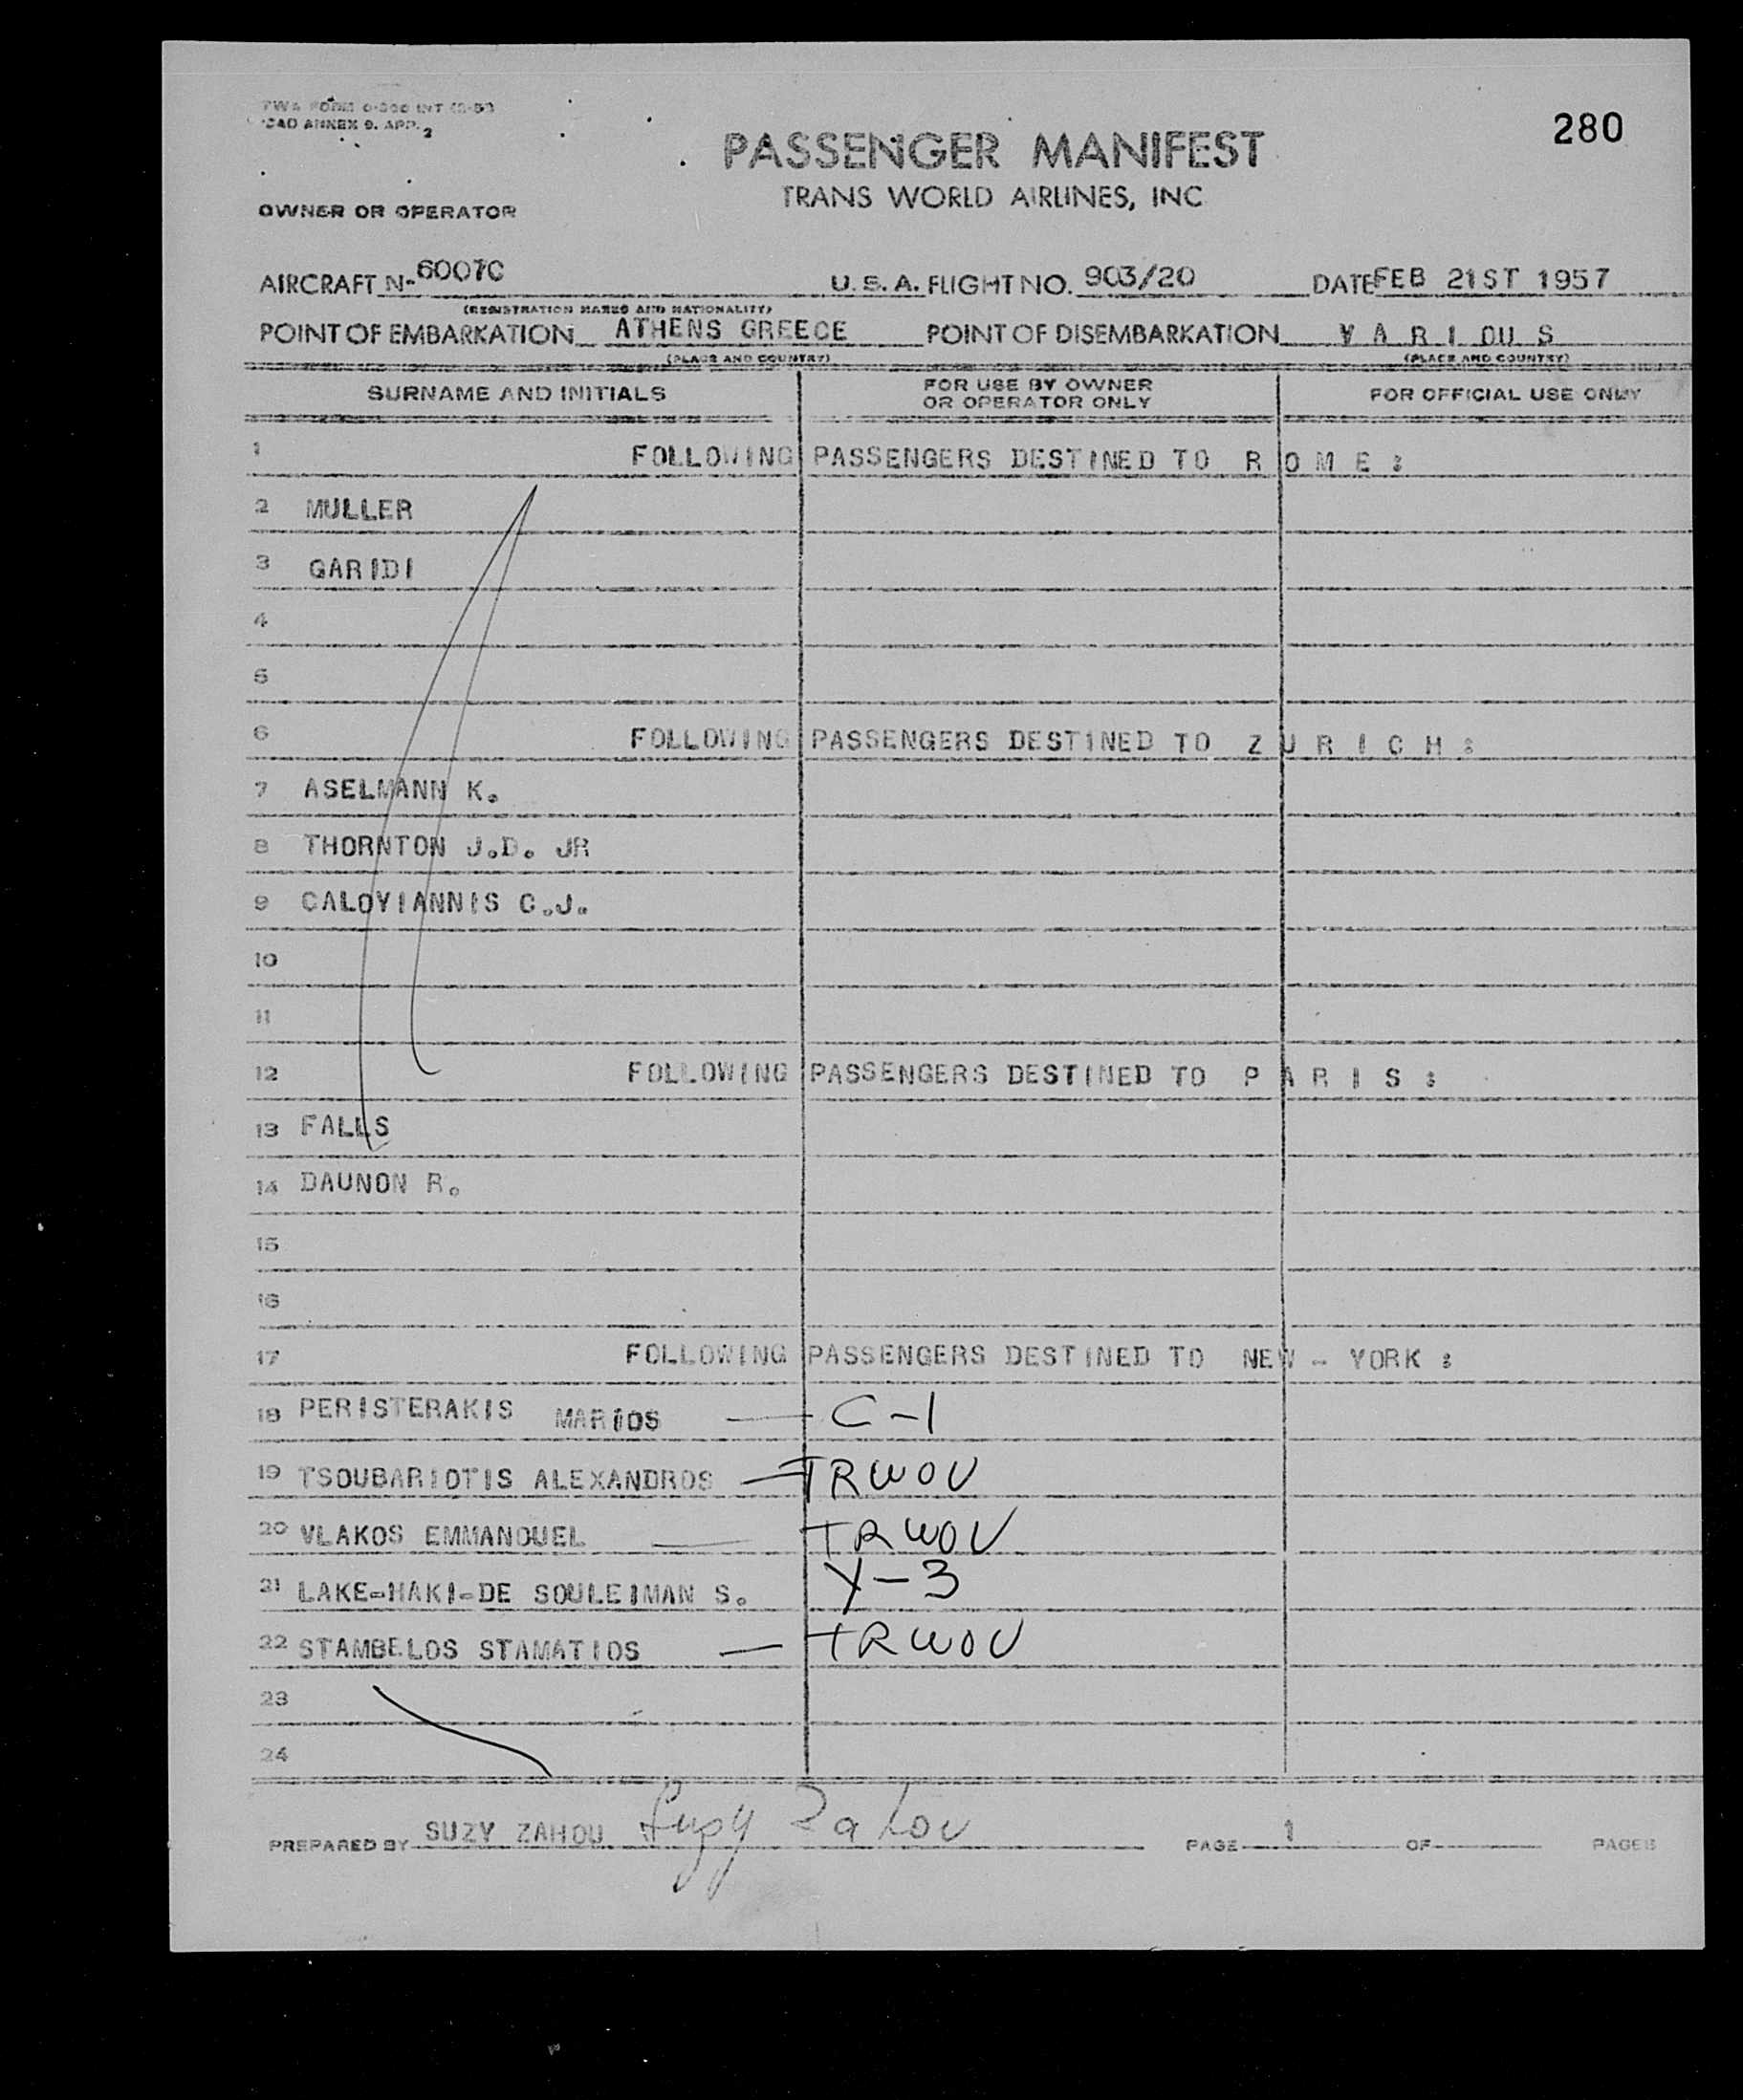 TWA FORM
ICAO ANNEX 9. APP. 2
280
PASSENGER MANIFEST
TRANS WORLD AIRLINES, INC
OWNER OR OPERATOR
AIRCRAFT N- 6007C U. S. A. FLIGHT NO. 903/20 DATE FEB 21ST 1957
(REGISTRATION MARKS AND NATIONALITY)
POINT OF EMBARKATION ATHENS GREECE POINT OF DISEMBARKATION V A R I OU S
(PLACE AND COUNTRY) (PLACE AND COUNTRY)
SURNAME AND INITIALS FOR USE BY OWNER OR OPERATOR ONLY FOR OFFICIAL USE ONLY
1 FOLLOWING PASSENGERS DESTINED TO R O M E :
2 MULLER
3 GARIDI
4
5
6 FOLLOWING PASSENGERS DESTINED TO Z U R I C H :
7 ASELMANN K.
8 THORNTON J.D. JR
9 CALOYIANNIS C.J.
10
11
12 FOLLOWING PASSENGERS DESTINED TO P A R I S :
13 FALLS
14 DAUNON R.
15
16
17 FOLLOWING PASSENGERS DESTINED TO NEW - YORK :
18 PERISTERAKIS MARIOS — C-1
19 TSOUBARIOTIS ALEXANDROS — TRWOV
20 VLAKOS EMMANOUEL — TRWOV
21 LAKE-HAKI-DE SOULEIMAN S. Y-3
22 STAMBELOS STAMATIOS — TRWOV
23
24
PREPARED BY SUZY ZAHOU Suzy Zahou PAGE 1 OF PAGES